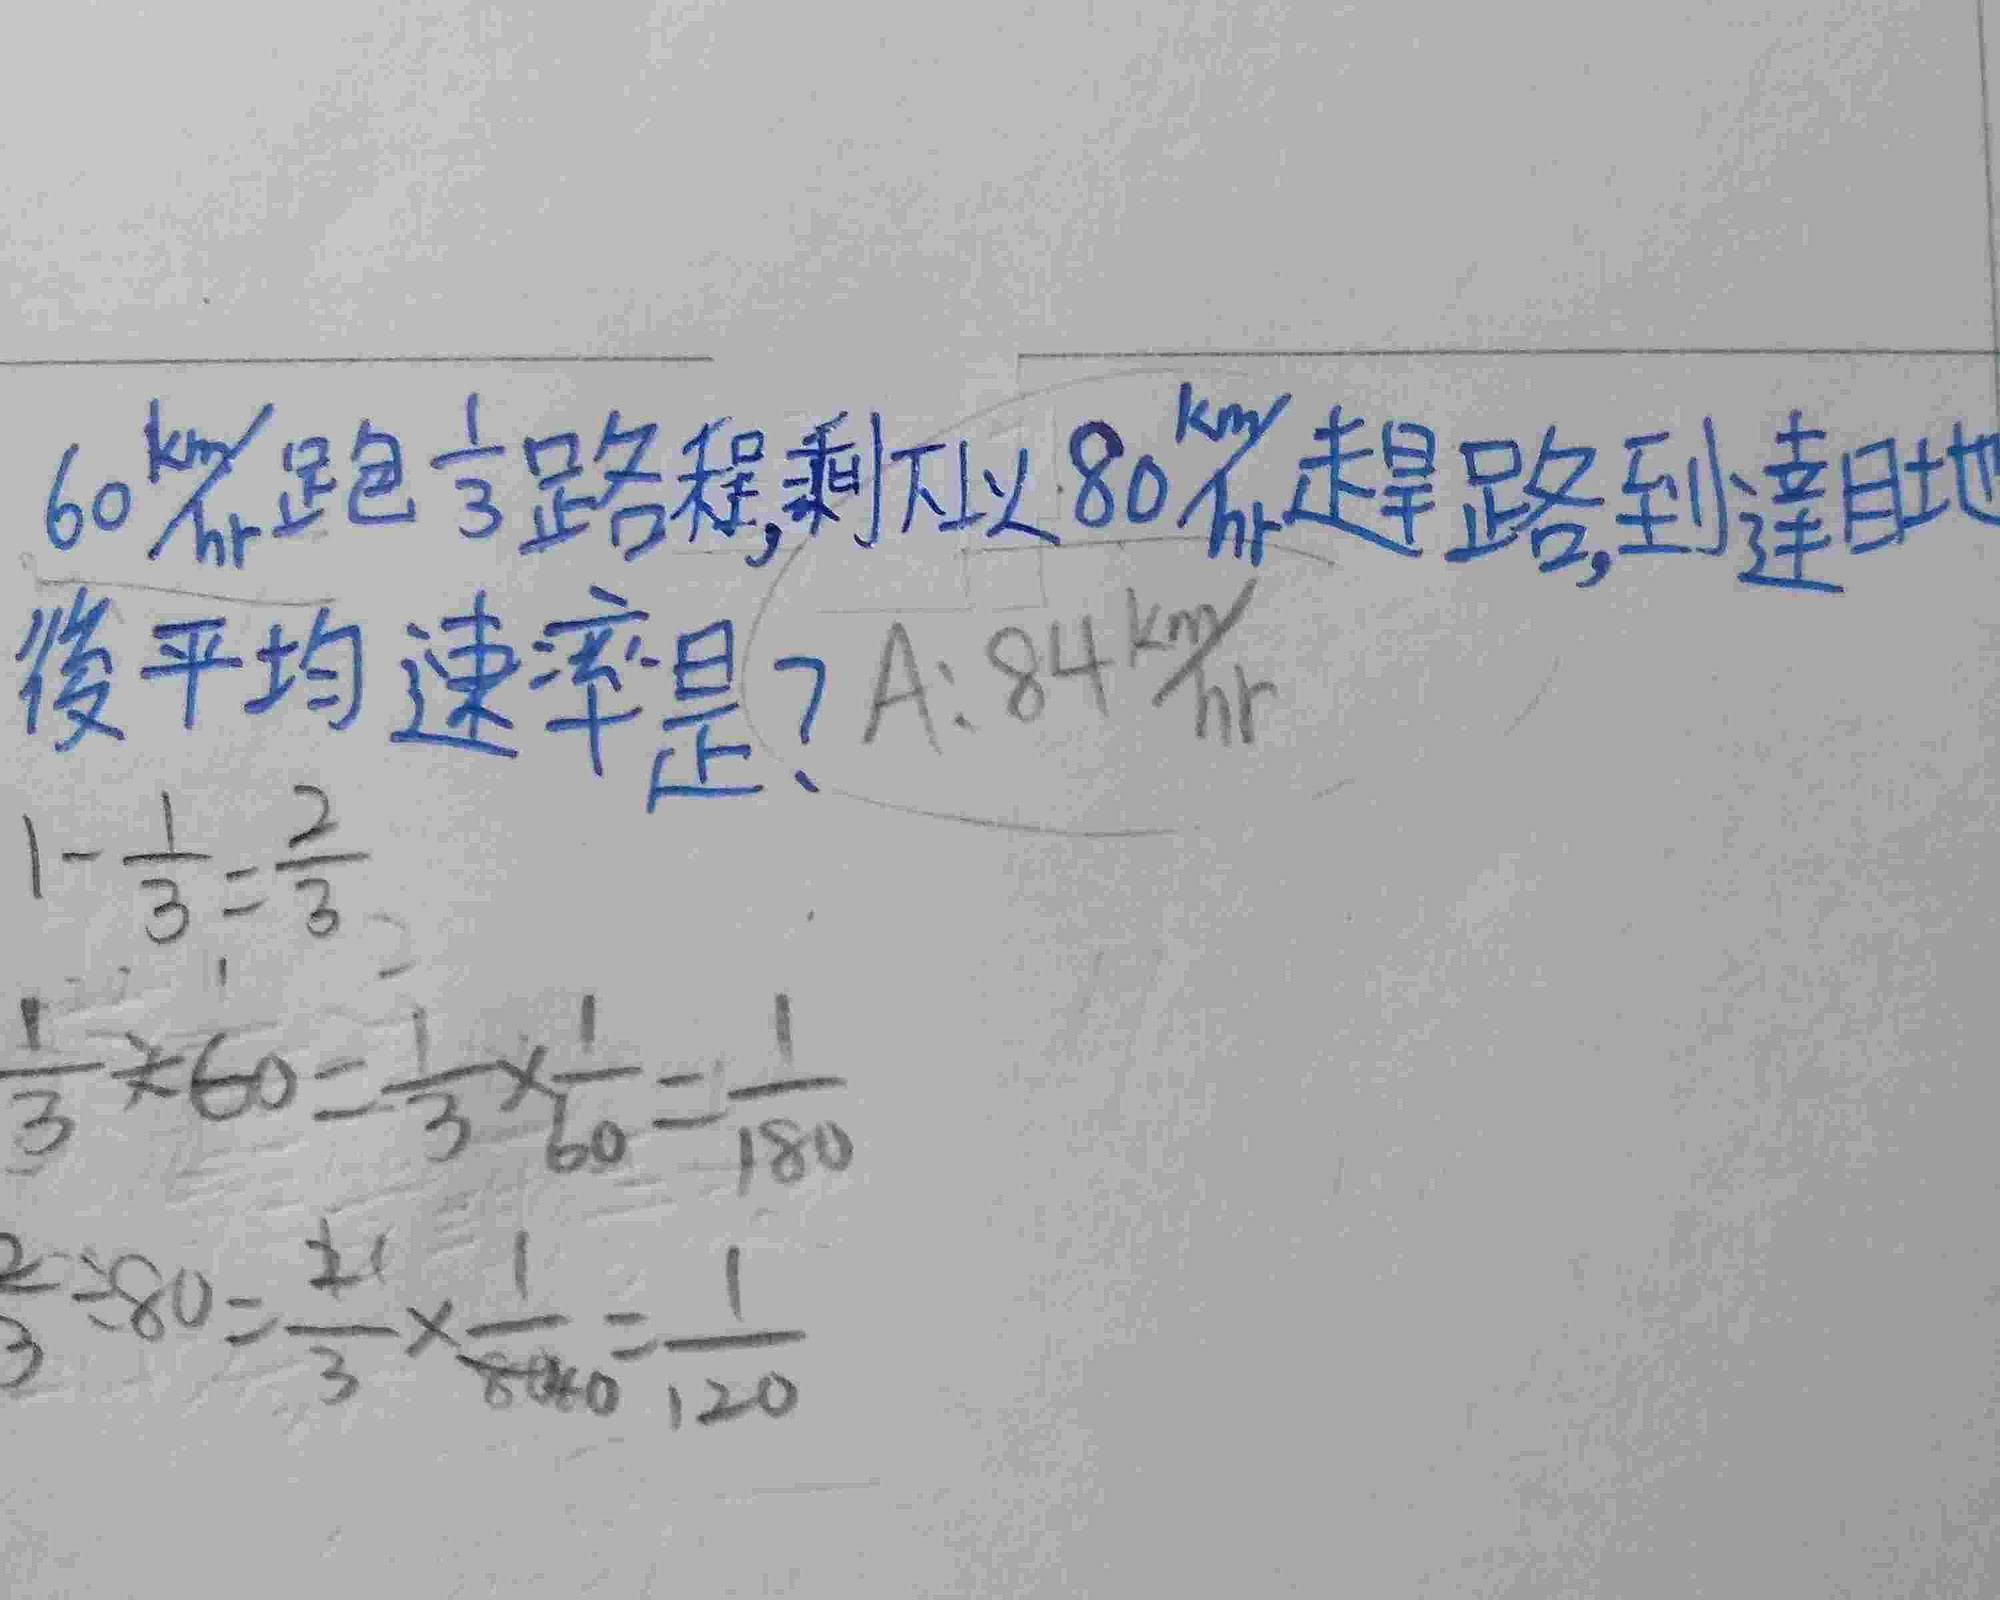 60 km/hr 跑 1/3 路程,剩下以 80 km/hr 趕路,到達目地
後平均速率是? A: 84 km/hr
1 - 1/3 = 2/3
1/3 ÷ 60 = 1/3 × 1/60 = 1/180
2/3 ÷ 80 = 2 1/3 × 1/80 40 = 1/120